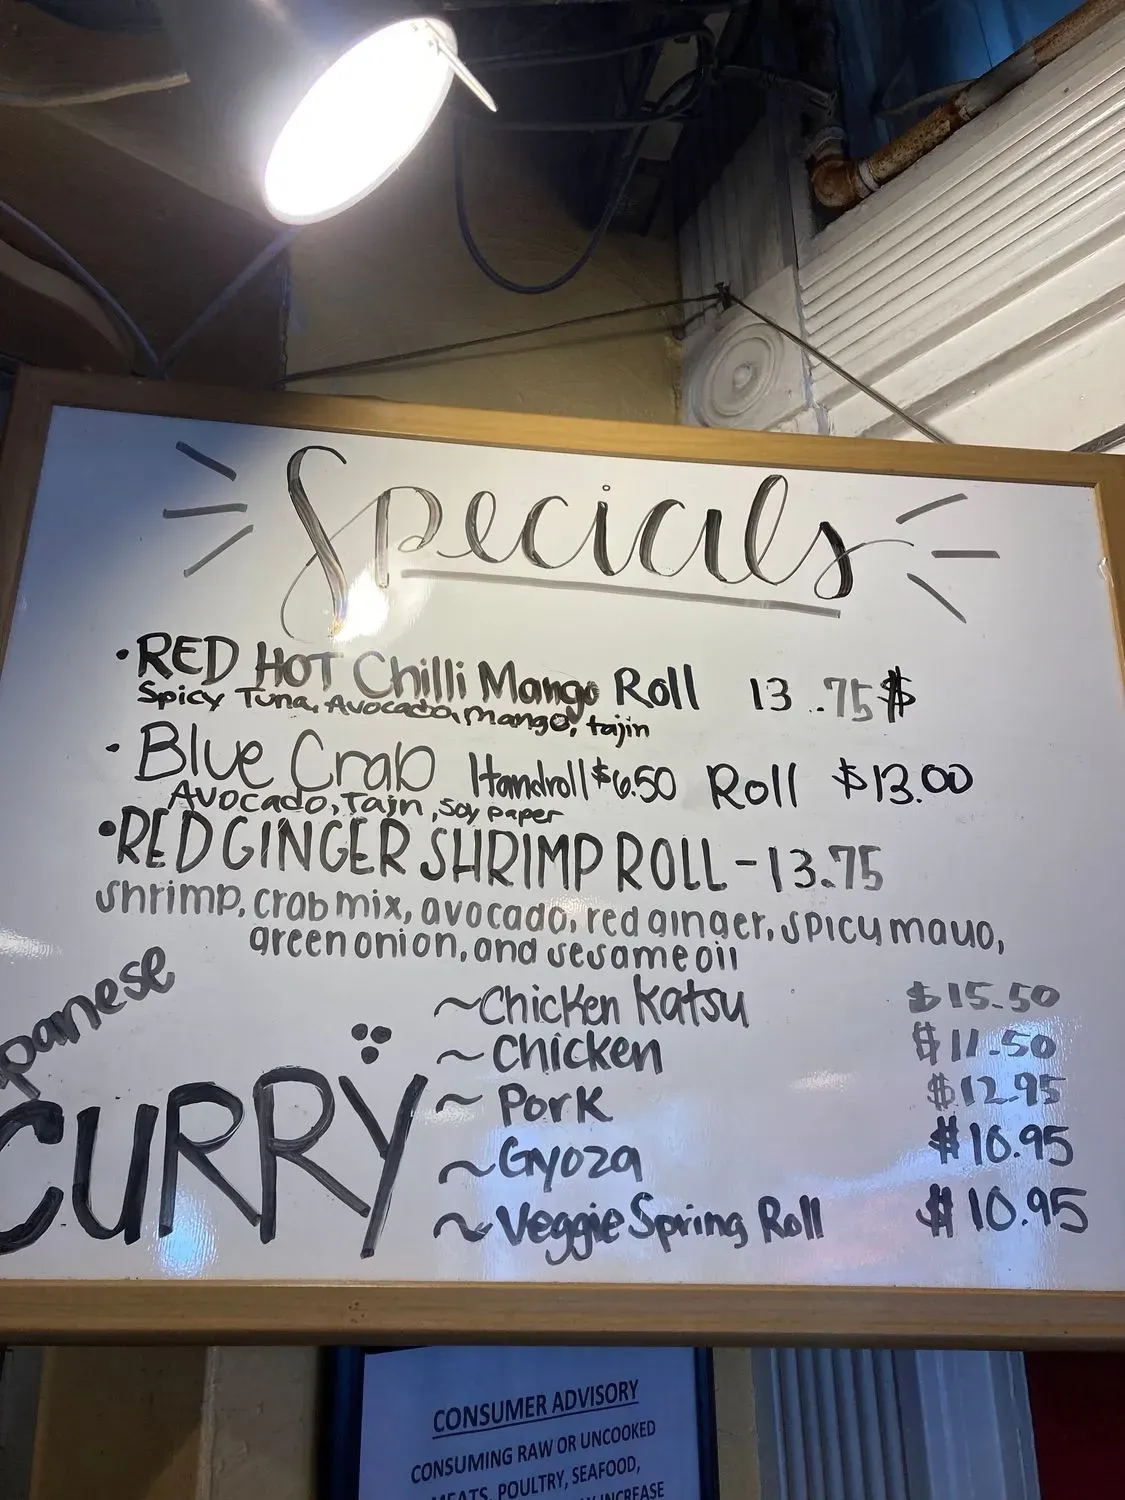 Specials
• RED HOT Chilli Mango Roll 13.75$
Spicy Tuna, Avocado, mango, tajin
• Blue Crab Handroll $6.50 Roll $13.00
Avocado, Tajn, soy paper
• RED GINGER SHRIMP ROLL - 13.75
shrimp, crab mix, avocado, red ginger, spicy mayo,
green onion, and sesame oil
panese
CURRY
~Chicken Katsu $15.50
~Chicken $11.50
~Pork $12.95
~Gyoza $10.95
~Veggie Spring Roll $10.95
CONSUMER ADVISORY
CONSUMING RAW OR UNCOOKED
MEATS, POULTRY, SEAFOOD,
INCREASE